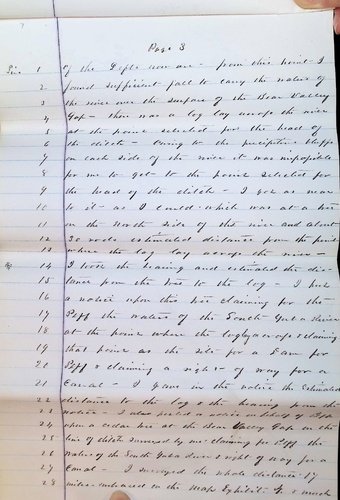 Page 3
Line 1 of the Pipe now are - from this point I
2 found sufficient fall to carry the water of
3 the river over the surface of the Bear Valley
4 Gap - there was a log lay across the river
5 at the point selected for the head of
6 the ditch - Owing to the precipitous bluffs
7 on each side of the river it was impossible
8 for me to get to the point selected for
9 the head of the ditch - I got as near
10 to it - as I could - which was at a tree
11 on the North side of the river and about
12 30 rods estimated distance from the point
13 where the log lay across the river -
14 I took the bearing and estimated the dis-
15 tance from the tree to the log - I put
16 a notice upon this tree claiming for the
17 Plff the waters of the South Yuba River
18 at the point where the log lay across & claiming
19 that point as the site for a Dam for
20 Plff & claiming a right of way for a
21 Canal - I gave in the notice the estimated
22 distance to the log & the bearing
23 notice - I also posted a notice in behalf of Plff
24 upon a cedar tree at the Bear Valley Gap on the
25 line of ditch surveyed by me claiming for Plff the
26 Water of the South Yuba River & right of way for a
27 Canal - I surveyed the whole distance 17
28 miles embraced in the map Exhibit & much